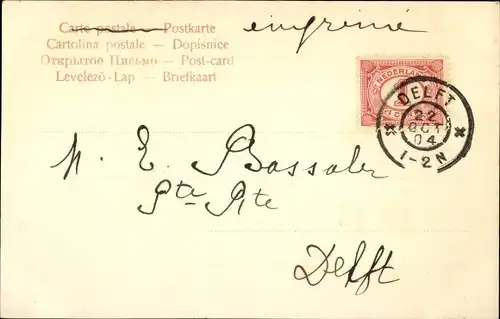 Carte postale — Postkarte
Cartolina postale — Dopisnice
Открытое Письмо — Post-card
Levelező-Lap — Briefkaart
imprimé
NEDERLAND
DELFT
22
OCT
04
1-2N
M. E. Bassaler
Pte Rte
Delft